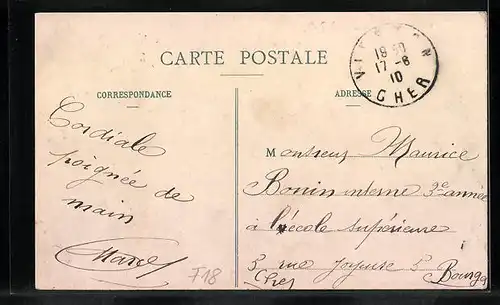 CARTE POSTALE
VIERZON
18 30
17-8
10
CHER
CORRESPONDANCE
ADRESSE
Cordiale
poignée de
main
Marcel
Monsieur Maurice
Bonin interne 3e année
à l'école supérieure
5 rue Joyeuse 5 Bourges
Cher
F18